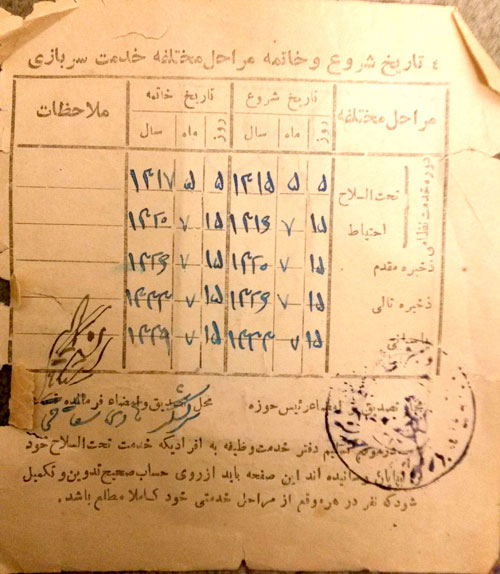 ٤ تاریخ شروع و خاتمه مراحل مختلفه خدمت سربازی
مراحل مختلفه تاریخ شروع تاریخ خاتمه ملاحظات
روز ماه سال روز ماه سال
دوره خدمت نظامی
تحت السلاح ۵ ۵ ۱۳۱۵ ۵ ۵ ۱۳۱۷
احتیاط ۱۵ ۷ ۱۵ ۷ ۱۳۲۰
ذخیره مقدم ۱۵ ۷ ۱۳۲۰ ۱۵ ۷ ۱۳۲۶
ذخیره تالی ۱۵ ۷ ۱۳۲۶ ۱۵ ۷
۱۵ ۷ ۱۵ ۷
تصدیق و امضاء رئیس حوزه محل تصدیق و امضاء فرمانده
درموقع تسلیم دفتر خدمت وظیفه به افرادیکه خدمت تحت السلاح خود
بپایان رسانیده اند این صفحه باید از روی حساب صحیح تدوین و تکمیل
شود که نفر در هر موقع از مراحل خدمتی خود کاملا مطلع باشد.